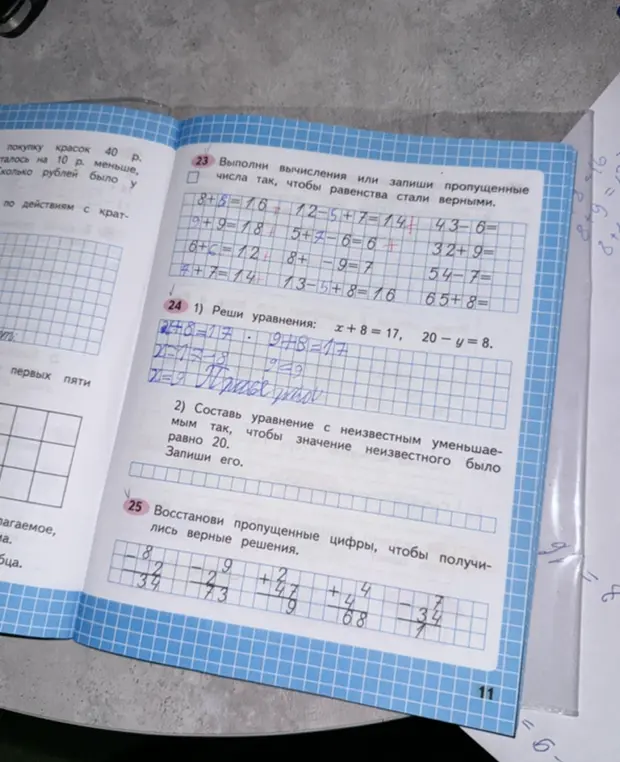 покупку красок 40 р.
талось на 10 р. меньше,
колько рублей было у
по действиям с крат-
первых пяти
лагаемое,
ма.
бца.
23 Выполни вычисления или запиши пропущенные
числа так, чтобы равенства стали верными.
8+8=16 12-5+7=14 43-6=
9+9=18 5+7-6=6 32+9=
6+6=12 8+ -9=7 54-7=
7+7=14 13-5+8=16 65+8=
24 1) Реши уравнения: x + 8 = 17, 20 − y = 8.
x+8=17 9+8=17
x=17-8 9=9
x=9
2) Составь уравнение с неизвестным уменьшае-
мым так, чтобы значение неизвестного было
равно 20.
Запиши его.
25 Восстанови пропущенные цифры, чтобы получи-
лись верные решения.
- 8 - 9 + 2 + 4 - 7
2 2 47 4 34
34 73 9 68 1
11